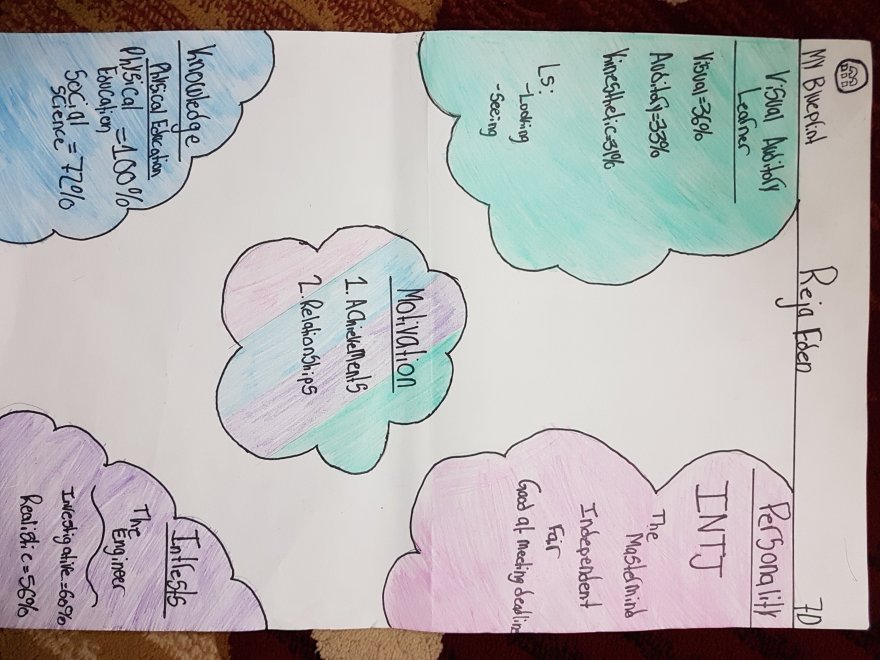 My Blueprint
Reja Eden
7D
Visual Auditory
Learner
Visual=36%
Auditory=33%
Kinesthetic=31%
LS:
-Looking
-Seeing
Personality
INTJ
The
Mastermind
Independent
Fair
Good at meeting deadline
Motivation
1. Achievements
2. Relationships
Knowledge
Physical Education
Physical =100%
Education
Social =72%
Science
Intrests
The
Engineer
Investigative=60%
Realistic=56%